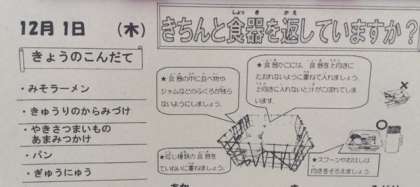 12月1日 （木）
きょうのこんだて
・みそラーメン
・きゅうりのからみづけ
・やきさつまいもの
あまみつかけ
・パン
・ぎゅうにゅう
きちんと食器を返していますか？
しょっき かえ
★食器の中に食べ物や
ジャムなどのふくろが残ら
ないようにしましょう。
★食器かごには、食器を上向きに
たおれないように重ねて入れましょう。
★同じ種類の食器を
ていねいに重ねましょう。
★スプーンやおはしは
向きをそろえましょう。